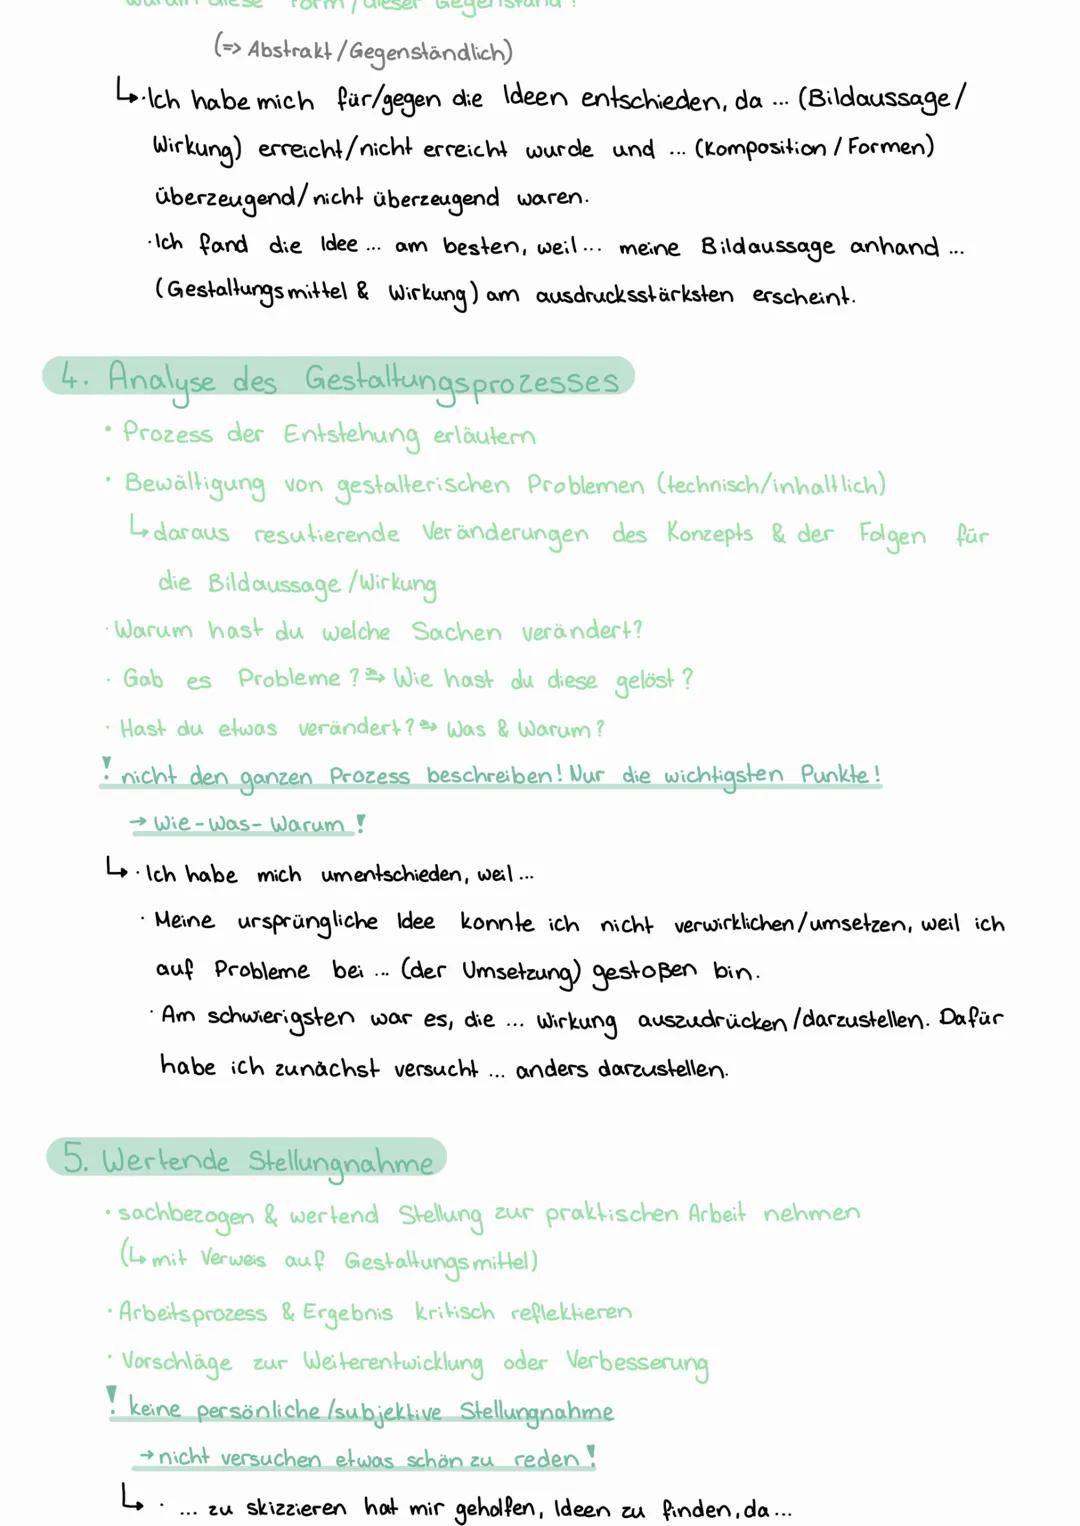 warum diese Form/dieser Gegenstand?
(=> Abstrakt/Gegenständlich)
↳ ·Ich habe mich für/gegen die Ideen entschieden, da ... (Bildaussage/
Wirkung) erreicht/nicht erreicht wurde und ... (Komposition / Formen)
überzeugend/nicht überzeugend waren.
·Ich fand die Idee ... am besten, weil ... meine Bildaussage anhand ...
(Gestaltungsmittel & Wirkung) am ausdrucksstärksten erscheint.
4. Analyse des Gestaltungsprozesses
· Prozess der Entstehung erläutern
· Bewältigung von gestalterischen Problemen (technisch/inhaltlich)
↳ daraus resutierende Veränderungen des Konzepts & der Folgen für
die Bildaussage/Wirkung
· Warum hast du welche Sachen verändert?
· Gab es Probleme? => Wie hast du diese gelöst?
· Hast du etwas verändert? => Was & Warum?
! nicht den ganzen Prozess beschreiben! Nur die wichtigsten Punkte!
→ Wie-Was-Warum!
↳ · Ich habe mich umentschieden, weil ...
· Meine ursprüngliche Idee konnte ich nicht verwirklichen/umsetzen, weil ich
auf Probleme bei ... (der Umsetzung) gestoßen bin.
· Am schwierigsten war es, die ... Wirkung auszudrücken/darzustellen. Dafür
habe ich zunächst versucht ... anders darzustellen.
5. Wertende Stellungnahme
· sachbezogen & wertend Stellung zur praktischen Arbeit nehmen
(↳ mit Verweis auf Gestaltungsmittel)
· Arbeitsprozess & Ergebnis kritisch reflektieren
· Vorschläge zur Weiterentwicklung oder Verbesserung
! keine persönliche/subjektive Stellungnahme
→ nicht versuchen etwas schön zu reden!
↳ · ... zu skizzieren hat mir geholfen, Ideen zu finden, da ...